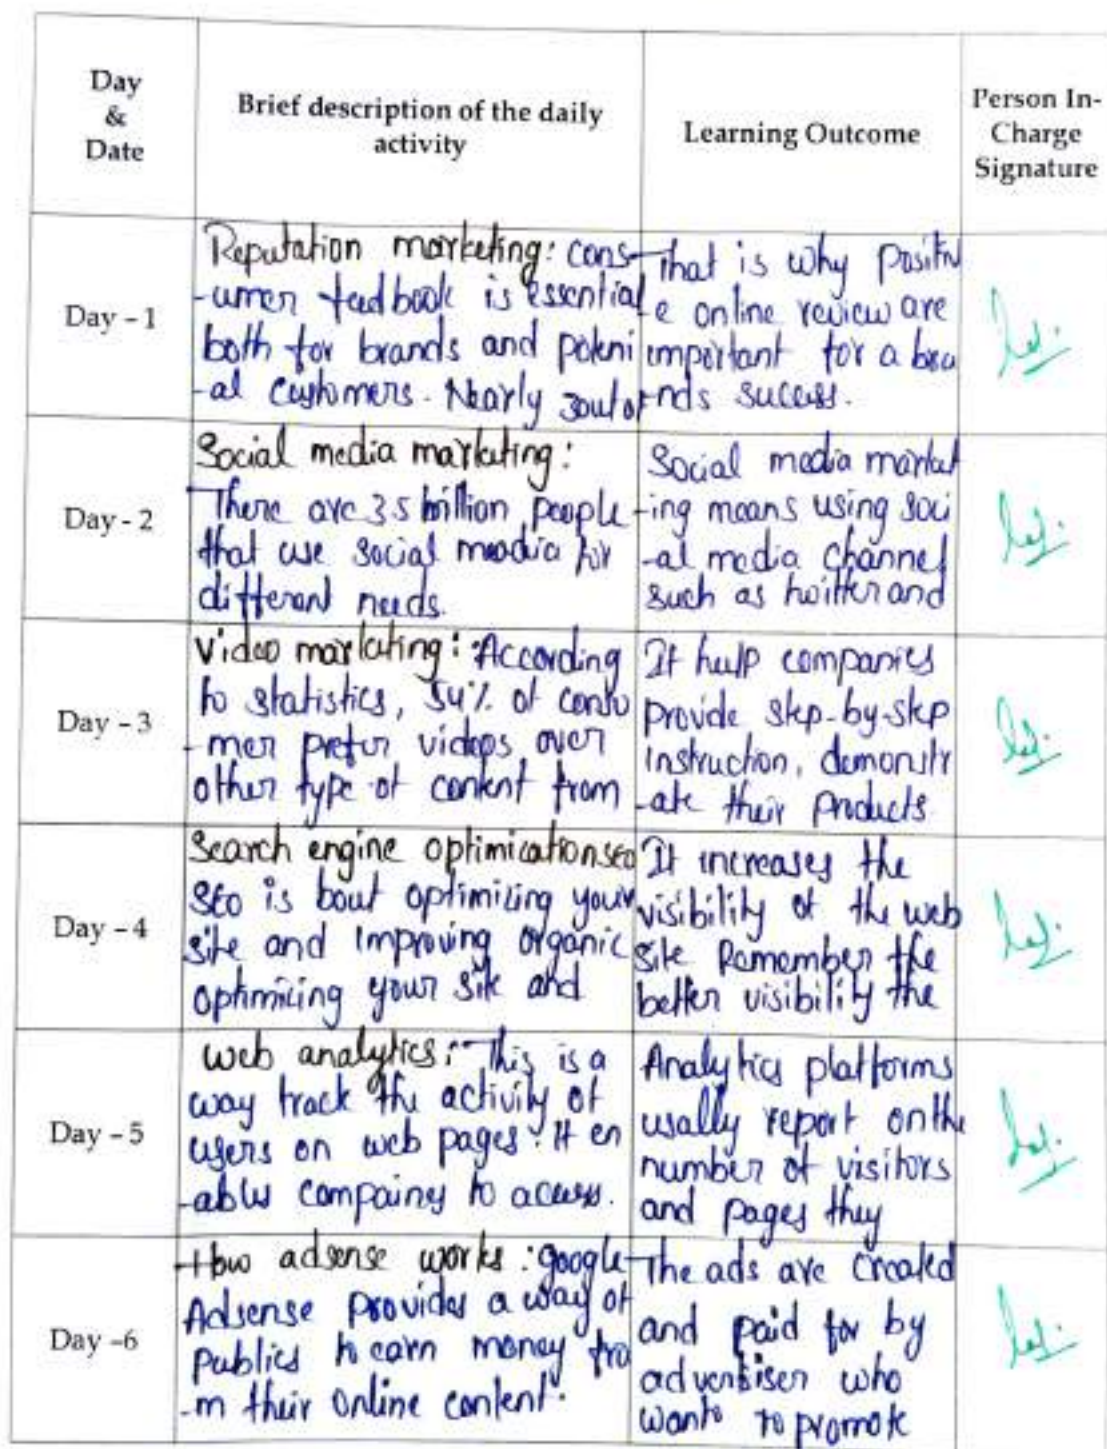 Day
&
Date
Brief description of the daily
activity
Learning Outcome
Person In-
Charge
Signature
Day - 1
Reputation marketing: cons
-umer feedback is essential
both for brands and poteni
-al customers. Nearly 3 out of
That is why positiv
e online review are
important for a bra
nds success.
Day - 2
Social media marketing:
There are 3.5 billion people
that use social meadia for
different needs.
Social media market
-ing means using soci
-al media channel
such as twitter and
Day - 3
Video marketing: According
to statistics, 54% of consu
-mer prefer videos over
other type of content from
It help companies
provide step-by-step
instruction, demonstr
-ate their products
Day - 4
Search engine optimication seo
SEO is bout optimizing your
site and improving organic
optimizing your site and
It increases the
visibility of the web
site Remember the
better visibility the
Day - 5
web analytics: This is a
way track the activity of
users on web pages. It en
-ables compainy to access.
Analytics platforms
usally report on the
number of visitors
and pages they
Day -6
How adsense works: google
Adsense provides a way of
publics to earn money fro
-m their online content.
The ads are created
and paid for by
advertiser who
wants to promote